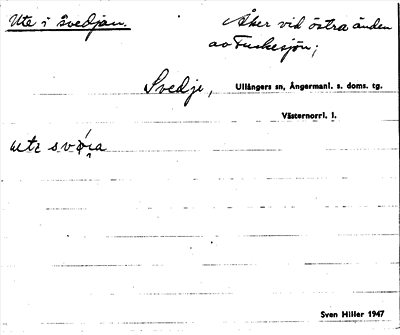 Ute i svedjan.
Åker vid östra änden
av Fuskesjön;
Svedje, Ullångers sn, Ångermanl. s. doms. tg.
Västernorrl. l.
ute
Sven Hiller 1947